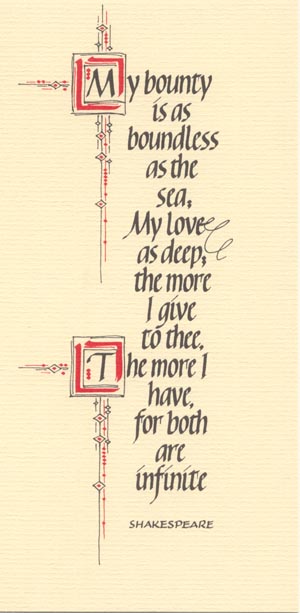 My bounty
is as
boundless
as the
sea,
My love
as deep;
the more
I give
to thee,
The more I
have,
for both
are
infinite
SHAKESPEARE